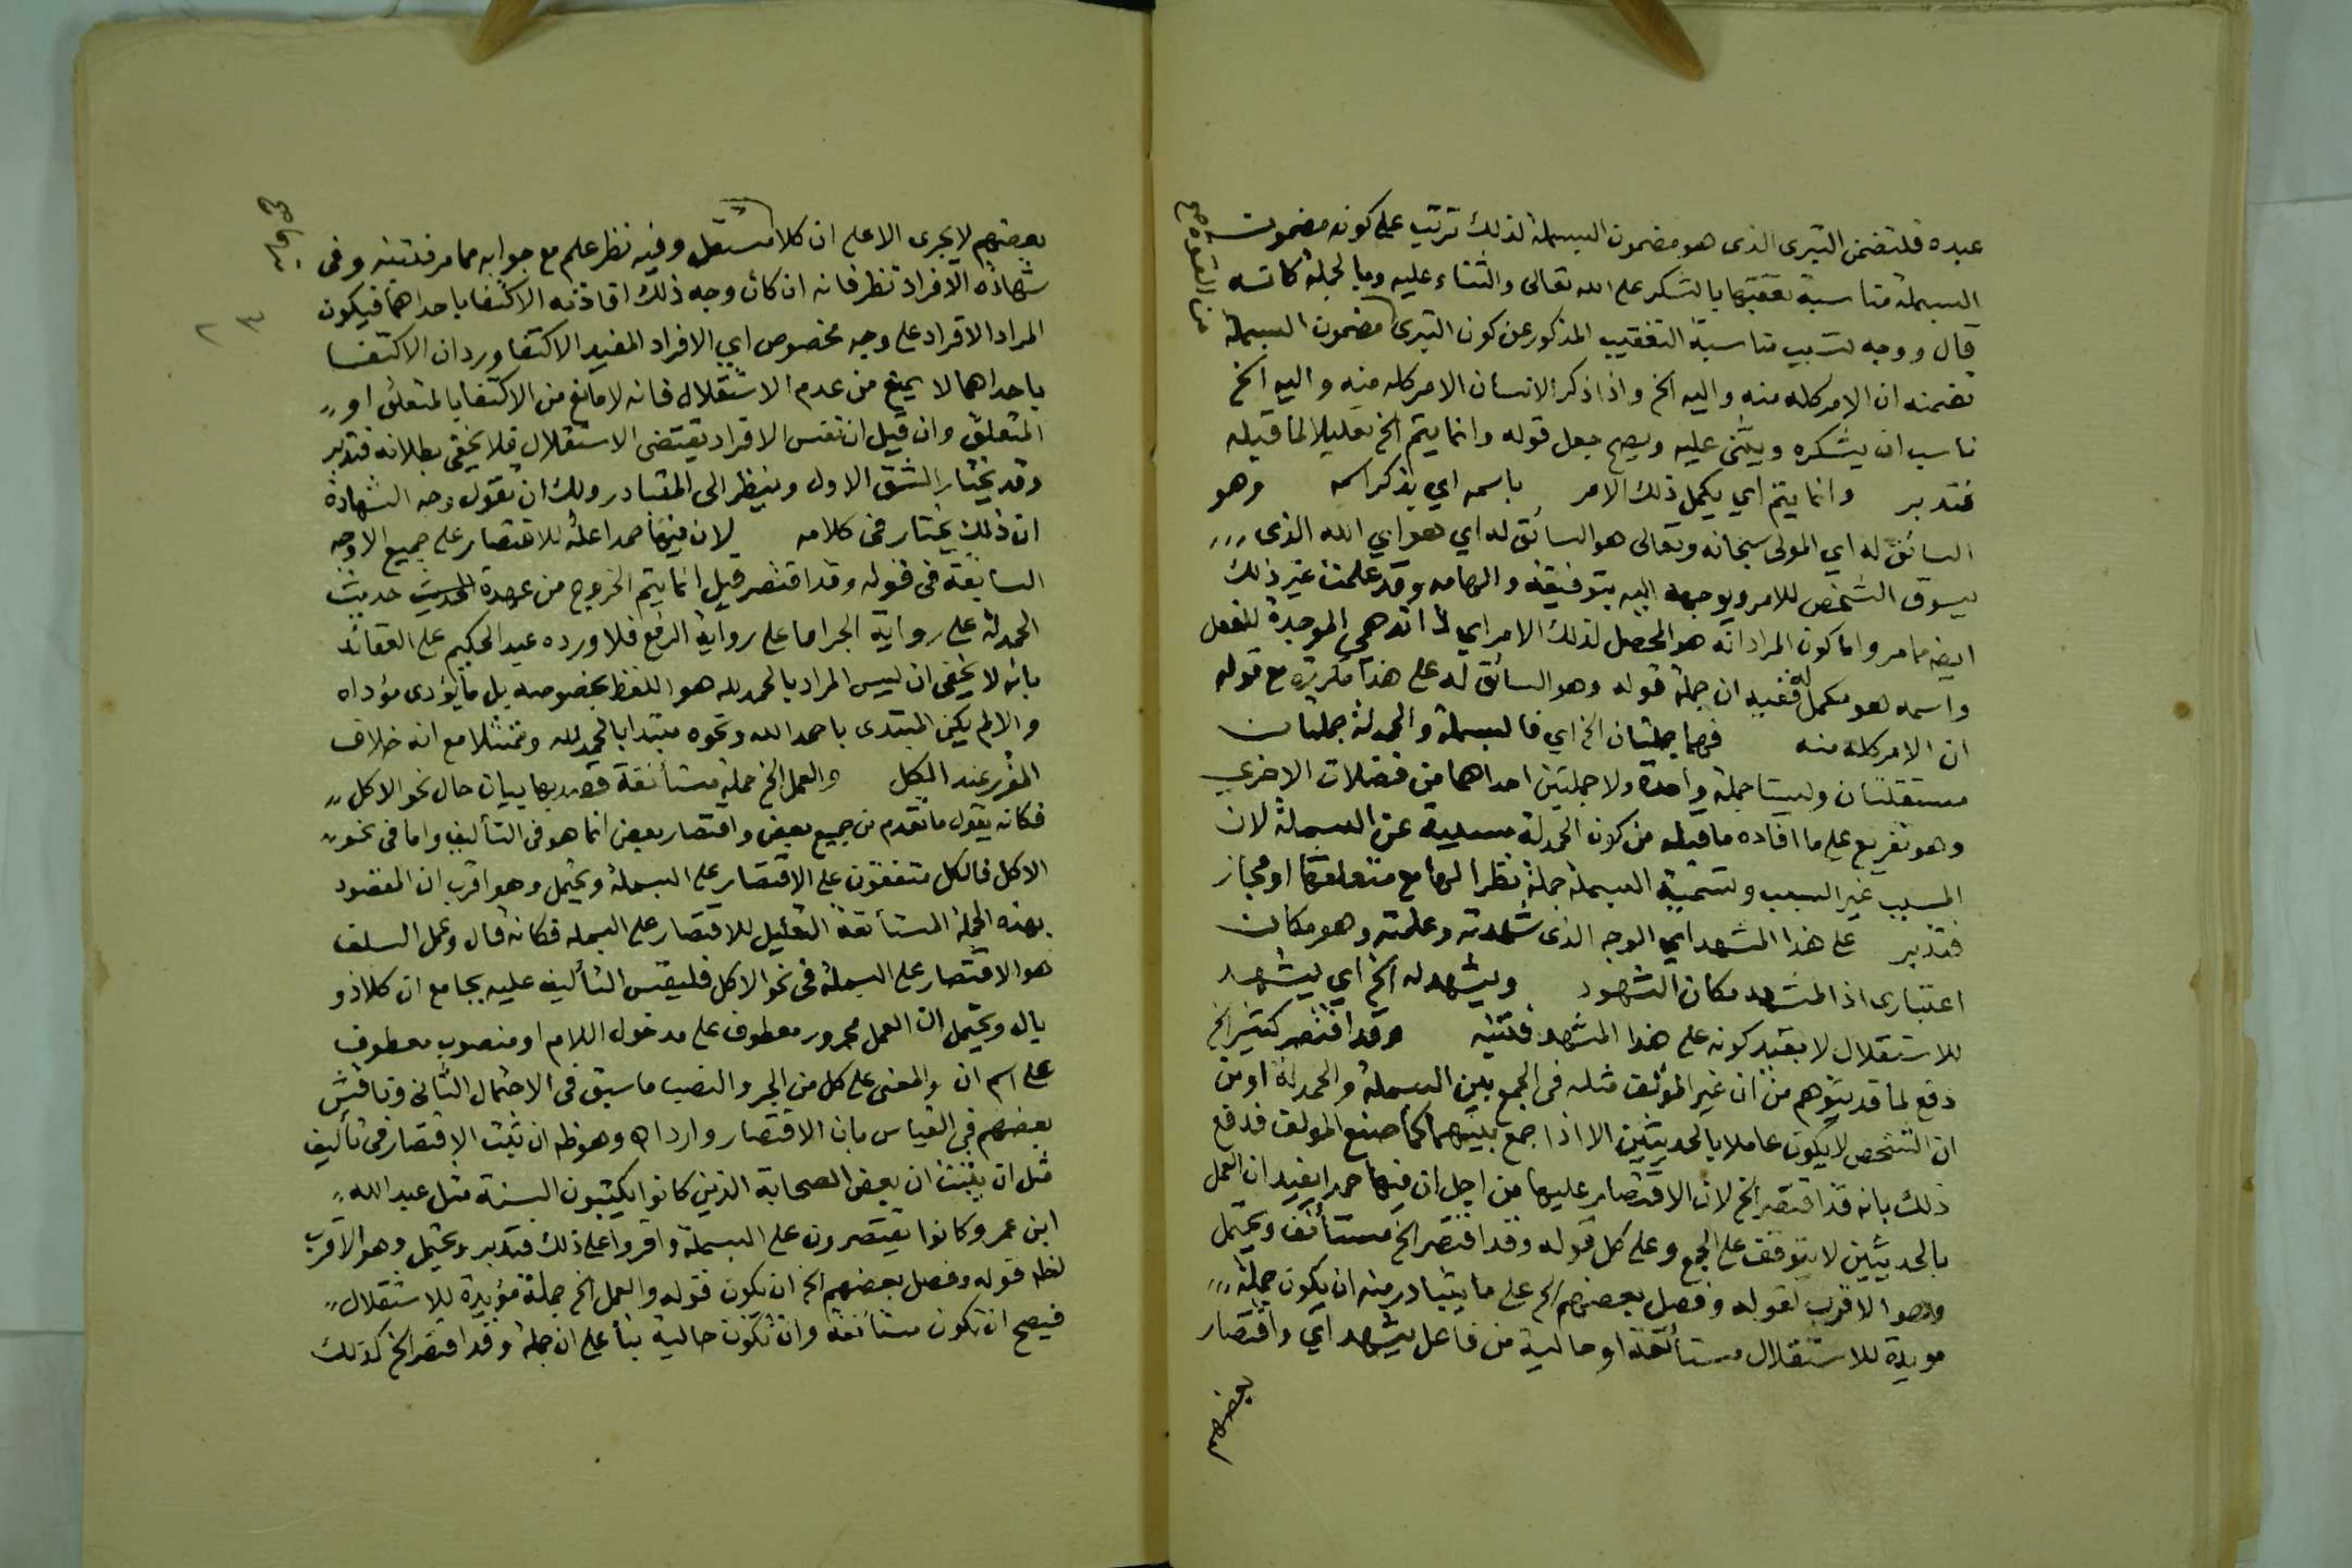 عبده فلتضمن التبرى الذى هو مضمون البسملة لذلك ترتب على كونه مضمون
البسملة مناسبة تعقيبها بالشكر على الله تعالى والثناء عليه وبالجملة كانه
قال ووجه تسبيب مناسبة التعقيب المذكور عن كون التبرى مضمون البسملة
تضمنه ان الامر كله منه واليه الخ واذا ذكر الانسان الامر كله منه واليه الخ
ناسب ان يشكره ويثنى عليه ويصح جعل قوله وانما يتم الخ تعليلا لما قبله
فتدبر وانما يتم اي يكمل ذلك الامر باسمه اي بذكر اسمه وهو
السائق له اي المولى سبحانه وتعالى هو السائق له اي هو اي الله الذى
يسوق الشخص للامر ويوجهه اليه بتوفيقه والهامه وقد علمت غير ذلك
ايضه مما مر واما كون المراد انه هو المحصل لذلك الامر اي لذاته هي الموجدة للفعل
واسمه هو مكمل له ففيه ان جملة قوله وهو السائق له على هذا مكررة مع قوله
ان الامر كله منه فهما جملتان الخ اي فالبسملة والحمدلة جملتان
مستقلتان وليستا جملة واحدة ولا جملتين احداهما من فضلات الاخرى
وهو تفريع على ما افاده ما قبله من كون الحمدلة مسببة عن البسملة لان
المسبب غير السبب وتسمية البسملة جملة نظرا لها مع متعلقها او مجاز
فتدبر على هذا المشهد اي الوجه الذى شهدته وعلمته وهو مكان
اعتبارى اذ المشهد مكان الشهود ويشهد له الخ اي يشهد
للاستقلال لا بقيد كونه على هذا المشهد فلتنبه وقد اقتصر كثير الخ
دفع لما قد يتوهم من ان غير المؤلف مثله فى الجمع بين البسملة والحمدلة او من
ان الشخص لا يكون عاملا بالحديثين الا اذا جمع بينهما كما صنع المولف فدفع
ذلك بانه قد اقتصر الخ لان الاقتصار عليها من اجل ان فيها حمدا يفيد ان العمل
بالحديثين لا يتوقف على الجمع وعلى كل قوله وقد اقتصر الخ مستأنف ويحتمل
وهو الاقرب لقوله وفصل بعضهم الخ على ما يتبادر منه ان يكون جملة
مويدة للاستقلال مستأنفة او حالية من فاعل يشهد اي واقتصار
بعضهم
بعضهم لا يجرى الا على ان كلا مستقل وفيه نظر علم مع جوابه مما مر فلتنبه وفى
شهادة الافراد نظر فانه ان كان وجه ذلك افادته الاكتفا باحداهما فيكون
المراد الافراد على وجه مخصوص اي الافراد المفيد الاكتفا ورد ان الاكتفا
باحداهما لا يمنع من عدم الاستقلال فانه لا مانع من الاكتفا بالمتعلق او
المتعلق وان قيل ان نفس الافراد يقتضى الاستقلال فلا يخفى بطلانه فتدبر
وقد يختار الشق الاول وينظر الى المتبادر ولك ان تقول وجه الشهادة
ان ذلك يختار فى كلامه لان فيها حمدا علة للاقتصار على جميع الاوجه
السابقة فى قوله وقد اقتصر قيل انما يتم الخروج من عهدة الحديث حديث
الحمدلة على رواية الجر اما على رواية الرفع فلا ورده عبد الحكيم على العقائد
بانه لا يخفى ان ليس المراد بالحمد لله هو اللفظ بخصوصه بل ما يؤدى مؤداه
والا لم يكن المبتدى باحمد الله ونحوه مبتدا بالحمد لله وممتثلا مع انه خلاف
المقرر عند الكل والعمل الخ جملة مستأنفة قصد بها بيان حال نحو الاكل
فكانه يقول ما تقدم من جميع بعض واقتصار بعض انما هو فى التأليف واما فى نحو
الاكل فالكل متفقون على الاقتصار على البسملة ويحتمل وهو اقرب ان المقصود
بهذه الجملة المستأنفة التعليل للاقتصار على البسمله فكانه قال وعمل السلف
هو الاقتصار على البسملة فى نحو الاكل فليقس التأليف عليه بجامع ان كلا ذو
بال ويحتمل ان العمل مجرور معطوف على مدخول اللام او منصوب معطوف
على اسم ان والمعنى على كل من الجر والنصب ما سبق فى الاحتمال الثانى وناقش
بعضهم فى القياس بان الاقتصار وارد اه وهو ظه ان ثبت الاقتصار فى تأليف
مثل ان يثبت ان بعض الصحابة الذين كانوا يكتبون السنة مثل عبد الله
ابن عمر وكانوا يقتصرون على البسملة واقروا على ذلك فتدبر ويحتمل وهو الاقرب
لظه قوله وفصل بعضهم الخ ان يكون قوله والعمل الخ جملة مؤيدة للاستقلال
فيصح ان تكون مستأنفة وان تكون حالية بنأ على ان جملة وقد اقتصر الخ كذلك